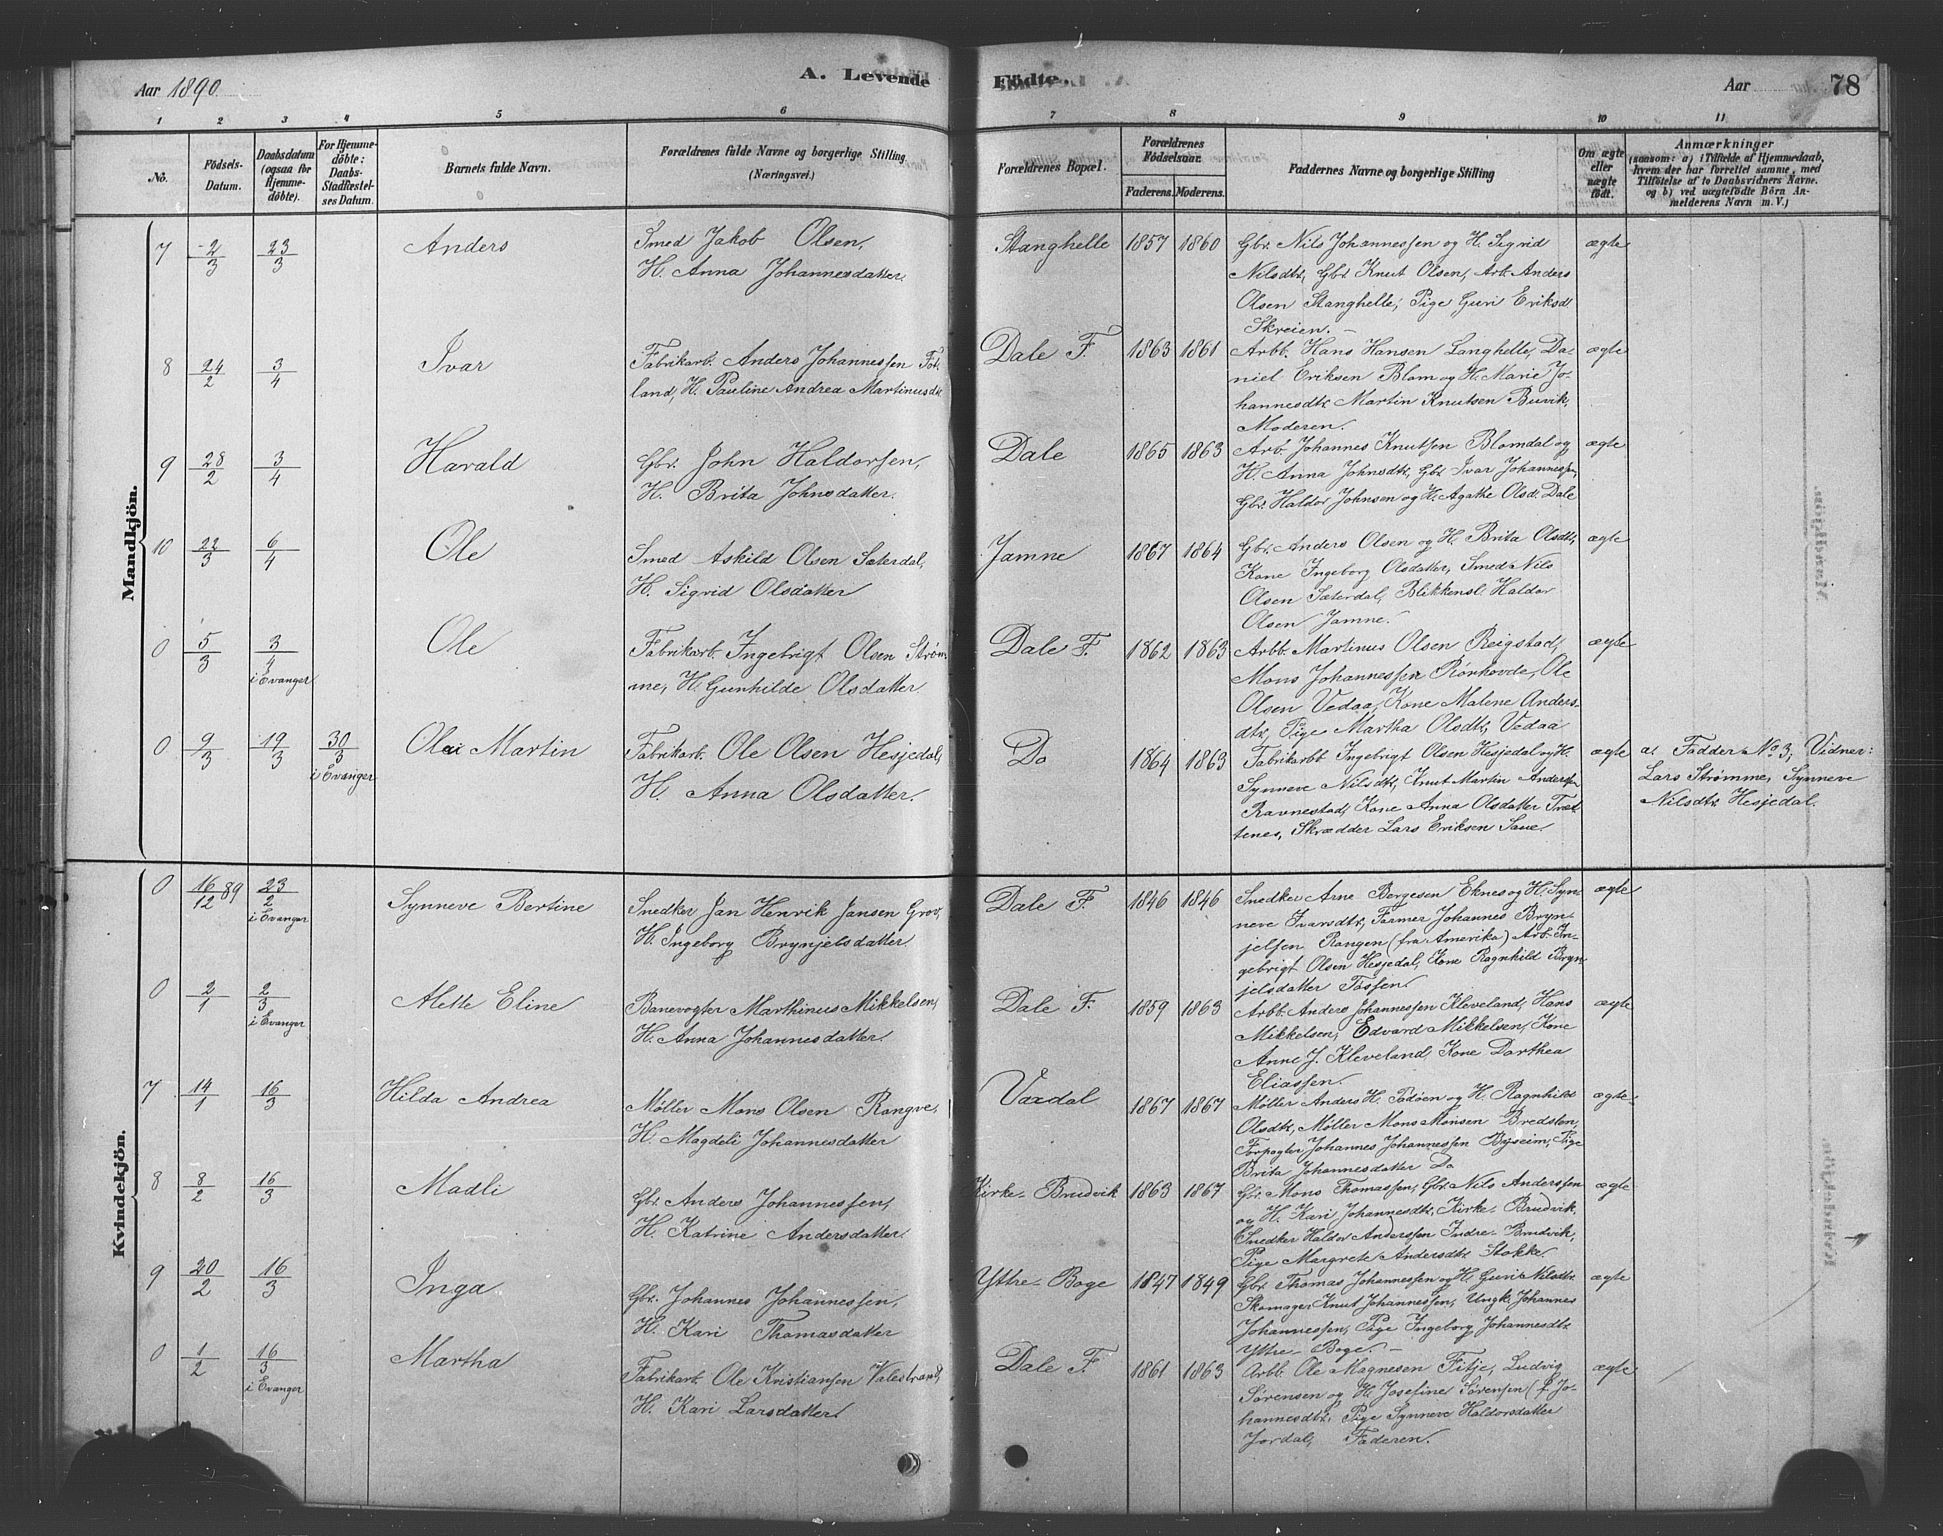 Aar 1890.
A. Levende
Födte.
Aar
78
1 2 3 4 5 6 7 8 9 10 11
No.
Födsels-Datum.
Daabsdatum (ogsaa for Hjemme-döbte).
For Hjemme-döbte: Daabs-Stadfæstel-ses Datum.
Barnets fulde Navn.
Forældrenes fulde Navne og borgerlige Stilling (Næringsvei.)
Forældrenes Bopæl.
Forældrenes Födselsaar.
Faderens. Moderens.
Faddernes Navne og borgerlige Stilling
Om ægte eller uægte födt.
Anmærkninger
(saasom: a) i Tilfælde af Hjemmedaab,
hvem der har forrettet samme, med
Tilföielse af to Daabsvidners Navne,
og b) ved uægtefödte Börn An-
melderens Navn m. V.)
Mandkjön.
7 2/3 23/3 Anders
Smed Jakob Olsen,
H. Anna Johannesdatter.
Stanghelle 1857 1860
Gbr. Nils Johannessen og H. Sigrid
Nilsdtr, Gbr Knut Olsen, Arb. Anders
Olsen Stanghelle, Pige Guri Eriksdt
Skreien. –
ægte
8 24/2 3/4 Ivar
Fabrikarb. Anders Johannessen Fot-
land, H. Pauline Andrea Martinusdtr
Dale F. 1863 1861
Arbb. Hans Hansen Langhelle, Da-
niel Eriksen Blom og H. Marie Jo-
hannesdtr. Martin Knutsen Buvik,
Moderen.
ægte
9 28/2 3/4 Harald
Gbr. John Haldorsen,
H. Brita Johnsdatter.
Dale 1865 1863
Arb. Johannes Knutsen Blomdal og
H. Anna Johnsdtr, Gbr Ivar Johannessen,
Gbr Haldor Johnsen og H. Agathe Olsd. Dale
ægte
10 22/3 6/4 Ole
Smed Askild Olsen Sæterdal,
H. Sigrid Olsdatter
Jamne 1867 1864
Gbr. Anders Olsen og H. Brita Olsdtr,
Kone Ingeborg Olsdatter, Smed Nils
Olsen Sæterdal, Blikkensl. Haldor
Olsen Jamne.
ægte
0 5/3 3/4 i Evanger Ole
Fabrikarb. Ingebrigt Olsen Strøm-
me, H. Gunhilde Olsdatter
Dale F. 1862 1863
Arbb. Martinus Olsen Reigstad,
Mons Johannessen Rørhovde, Ole
Olsen Vedaa, Kone Malene Anders-
dtr, Pige Martha Olsdtr, Vedaa
ægte
0 9/3 19/3 30/3 i Evanger Olai Martin
Fabrikarb. Ole Olsen Hesjedal,
H. Anna Olsdatter.
Do 1864 1863
Fabrikarbb Ingebrigt Olsen Hesjedal og H.
Synneve Nilsdtr, Knut Martin Andersen
Ravnestad, Kone Anna Olsdatter Træt-
tenes, Skrædder Lars Eriksen Saue.
ægte
a. Fadder No 3, Vidner:
Lars Strømme, Synneve
Nilsdtr Hesjedal.
Kvindekjön.
0 16/12 89 23/2 i Evanger Synneve Bertine
Snedker Jan Henrik Jansen Grov,
H. Ingeborg Brynjelsdatter
Dale F. 1846 1846
Snedker Arne Bergesen Eknes og H. Syn-
neve Ivarsdtr, Farmer Johannes Bryn-
jelsen Rangen (fra Amerika) Arb. In-
gebrigt Olsen Hesjedal, Kone Ragnhild Bryn
jelsdatter Tøssen.
ægte
0 2/1 2/3 i Evanger Alette Eline
Banevogter Marthinus Mikkelsen,
H. Anna Johannesdatter.
Dale F. 1859 1863
Arbb. Anders Johannessen Kleveland, Hans
Mikkelsen, Edvard Mikkelsen, Kone
Anne J. Kleveland, Kone Dorthea
Eliassen.
ægte
7 14/1 16/3 Hilda Andrea
Møller Mons Olsen Rongve,
H. Magdeli Johannesdatter
Vaxdal 1867 1867
Møller Anders H. Tadøen og H. Ragnhild
Olsdtr, Møller Mons Monsen Bredsten,
Forpagter Johannes Johannessen Bysheim, Pige
Brita Johannesdatter Do
ægte
8 8/2 16/3 Madli
Gbr. Anders Johannessen,
H. Katrine Andersdatter.
Kirke-Brudvik 1863 1867
Gbr. Mons Thomassen, Gbr. Nils Anderssen
og H. Kari Johannesdtr, Kirke-Brudvik,
Snedker Haldor Anderssen Indre-Brudvik,
Pige Margrete Andersdtr Stokke.
ægte
9 20/2 16/3 Inga
Gbr. Johannes Johannessen,
H. Kari Thomasdatter
Yttre-Boge 1847 1849
Gbr. Thomas Johannessen og H. Guri Nilsdtr.
Skomager Knut Johannessen, Ungk. Johannes
Johannessen, Pige Ingeborg Johannesdtr
Yttre-Boge. –
ægte
0 1/2 16/3 i Evanger Martha
Fabrikarb. Ole Kristiansen Valestrand,
H. Kari Larsdatter.
Dale F. 1861 1863
Arbb. Ole Magnesen Fitje, Ludvig
Sørensen og H. Josefine Sørensen (f. Jo-
hannesdtr), Pige Synneve Haldorsdatter
Jordal, Faderen.
ægte